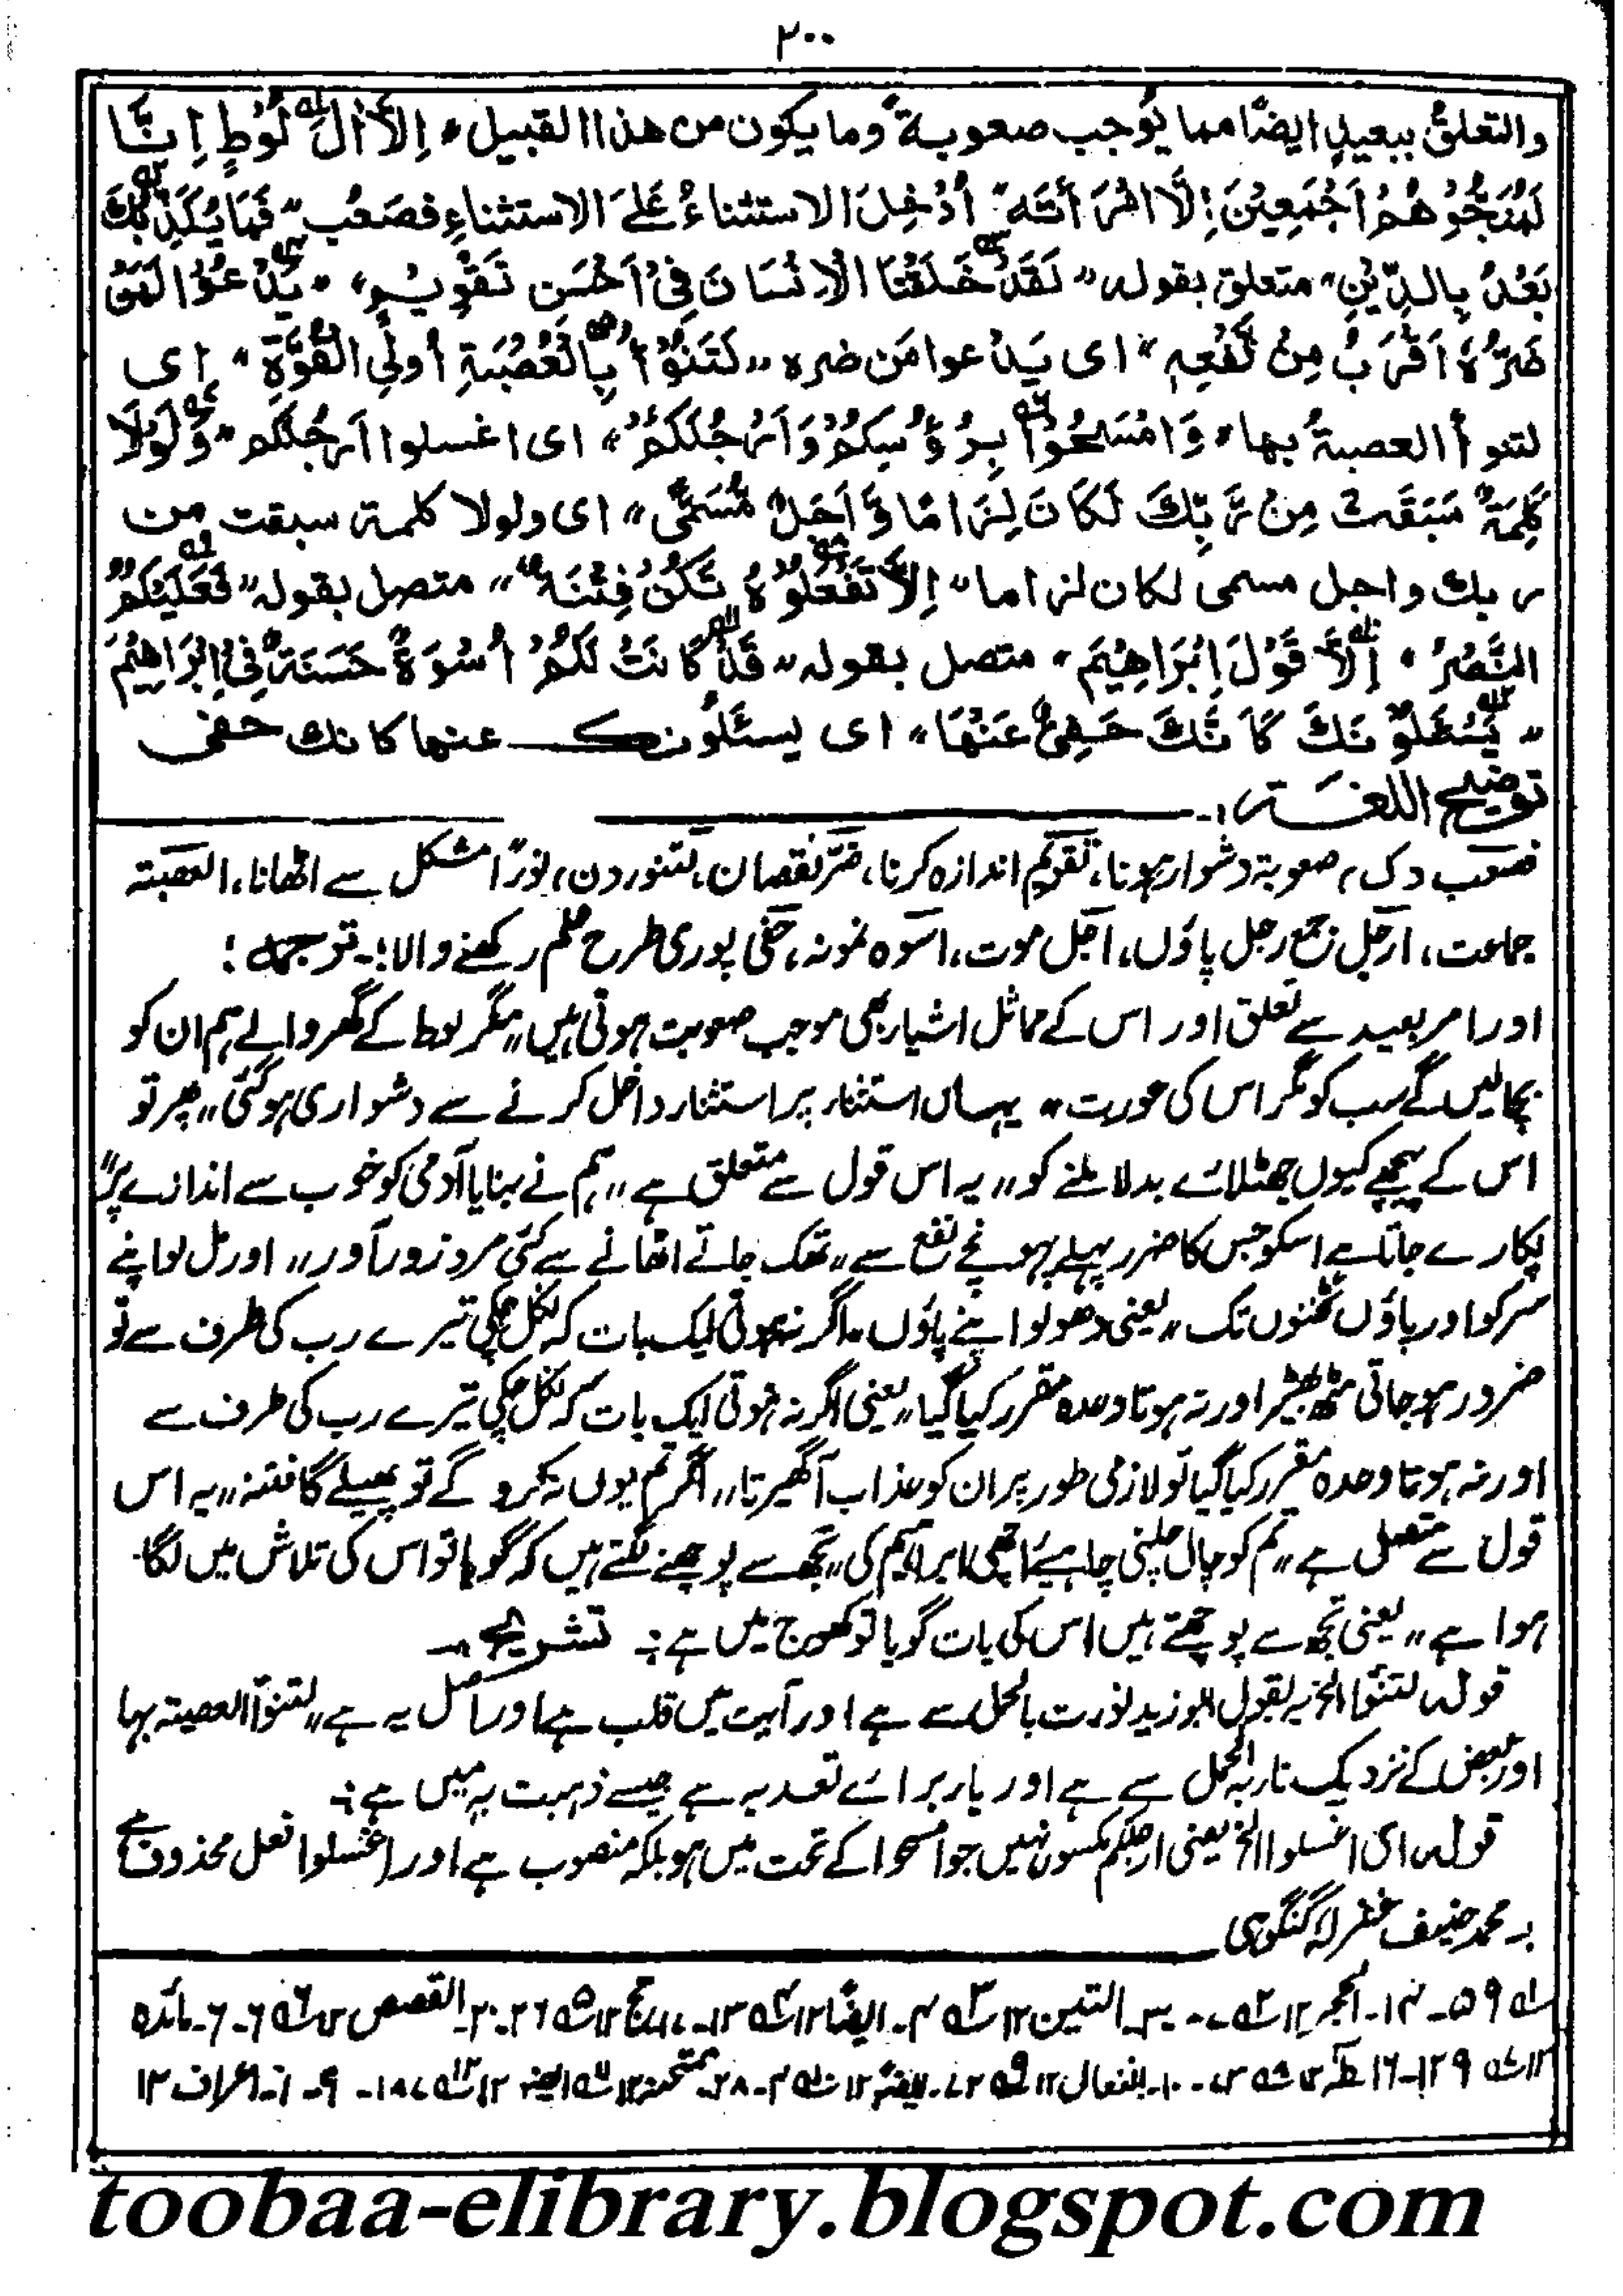 ۲۰۰
والتعلقُ ببعیدٍ ایضًا مما یُوجب صعوبةً وما یکون من هذا القبیل "اِلَّا اٰلَ لُوْطٍ اِنَّا
لَمُنَجُّوْهُمْ اَجْمَعِیْنَ اِلَّا امْرَاَتَهٗ" اُدْخِلَ الاستثناءُ عَلَی الاستثناءِ فصَعُب "فَمَا یُکَذِّبُكَ
بَعْدُ بِالدِّیْنِ" متعلق بقوله "لَقَدْ خَلَقْنَا الْاِنْسَانَ فِیْ اَحْسَنِ تَقْوِیْمٍ" "یَدْعُوْا لَمَنْ
ضَرُّهٗ اَقْرَبُ مِنْ نَّفْعِهٖ" ای یَدْعوا مَن ضره "لَتَنُوْٓأُ بِالْعُصْبَةِ اُولِی الْقُوَّةِ" ای
لتنوأ العصبةُ بها "وَامْسَحُوْا بِرُءُوْسِکُمْ وَاَرْجُلَکُمْ" ای اغسلوا ارجُلکم "وَلَوْلَا
کَلِمَةٌ سَبَقَتْ مِنْ رَّبِّكَ لَکَانَ لِزَامًا وَّاَجَلٌ مُّسَمًّی" ای ولولا کلمة سبقت من
ربك واجل مسمی لکان لزاما "اِلَّا تَفْعَلُوْهُ تَکُنْ فِتْنَةٌ" متصل بقوله "فَعَلَیْکُمُ
النَّصْرُ" "اِلَّا قَوْلَ اِبْرَاهِیْمَ" متصل بقوله "قَدْ کَانَتْ لَکُمْ اُسْوَةٌ حَسَنَةٌ فِیْ اِبْرَاهِیْمَ"
"یَسْئَلُوْنَكَ کَاَنَّكَ حَفِیٌّ عَنْهَا" ای یسئلونك عنها کانك حفی
توضیح اللغة:-
فصعب دک، صعوبة دشوار ہونا، تقویم اندازہ کرنا، ضر نقصان، لتنوء (ن) نوءًا مشکل سے اٹھانا، العصبة
جماعت، ارجل جمع رجل پاؤں، اجل موت، اسوہ نمونہ، حفی پوری طرح علم رکھنے والا؛۔ ترجمہ:
اور امر بعید سے تعلق اور اس کے مماثل اشیاء بھی موجب صعوبت ہوتی ہیں "مگر لوط کے گھر والے ہم ان کو
بچالیں گے سب کو مگر اس کی عورت" یہاں استثناء پر استثناء داخل کرنے سے دشواری ہوگئی "پھر تو
اس کے پیچھے کیوں جھٹلائے بدلا ملنے کو" یہ اس قول سے متعلق ہے "ہم نے بنایا آدمی کو خوب سے اندازے پر"
پکارے جاتا ہے اسکو جس کا ضرر پہلے پہونچے نفع سے "تھک جاتے اٹھانے سے کئی مرد زور آور" اور مل لو اپنے
سر کو اور پاؤں ٹخنوں تک "یعنی دھولو اپنے پاؤں" اگر نہ ہوتی ایک بات کہ نکل چکی تیرے رب کی طرف سے تو
ضرور ہو جاتی مٹھ بھیڑ اور نہ ہوتا وعدہ مقرر کیا گیا "یعنی اگر نہ ہوتی ایک بات کہ نکل چکی تیرے رب کی طرف سے
اور نہ ہوتا وعدہ مقرر کیا گیا تو لازمی طور پر ان کو عذاب آگھیرتا" اگر تم یوں نہ کرو گے تو پھیلے گا فتنہ "یہ اس
قول سے متصل ہے" تم کو چال چلنی چاہیے اچھی ابراہیم کی "تجھ سے پوچھنے لگتے ہیں کہ گویا تو اس کی تلاش میں لگا
ہوا ہے" یعنی تجھ سے پوچھتے ہیں اس کی بات گویا تو کھوج میں ہے؛ تشریح:-
قولہ لتنوأ الخ یہ بقول ابوزید نؤت بالحمل سے ہے اور آیت میں قلب ہے اور اصل یہ ہے "لتنوأ العصبة بہا
اور بعض کے نزدیک ناء بہ الحمل سے ہے اور باء برائے تعدیہ ہے جیسے ذہبت بہ میں ہے؛
قولہ ای اغسلوا الخ یعنی ارجلکم مکسور نہیں جو امسحوا کے تحت میں ہو بلکہ منصوب ہے اور اغسلوا فعل محذوف ہے
بر محمد حنیف غفرلہ گنگوہی
لہ ۵۹-۱۴-الحجر ۱۲ ٢ہ ۷-۳۰-التین ۱۲ ٣ہ ۴-ایضًا ۱۲ ٤ہ ۱۳-۱۷-حج ۱۲ ٥ہ ۷۶-۲۰-القصص ۱۲ ٦ہ ۶-۶-مائدہ
۱۲ ٧ہ ۱۲۹-۱۶-طہٰ ۱۲ ٨ہ ۷۳-۱۰-انفال ۱۲ ٩ہ ۷۲-ایضًا ۱۲ ١٠ہ ۴-۲۸-ممتحنہ ۱۲ ١١ہ ایضًا ۱۲ ١٢ہ ۱۸۷-۹-اعراف ۱۲
toobaa-elibrary.blogspot.com